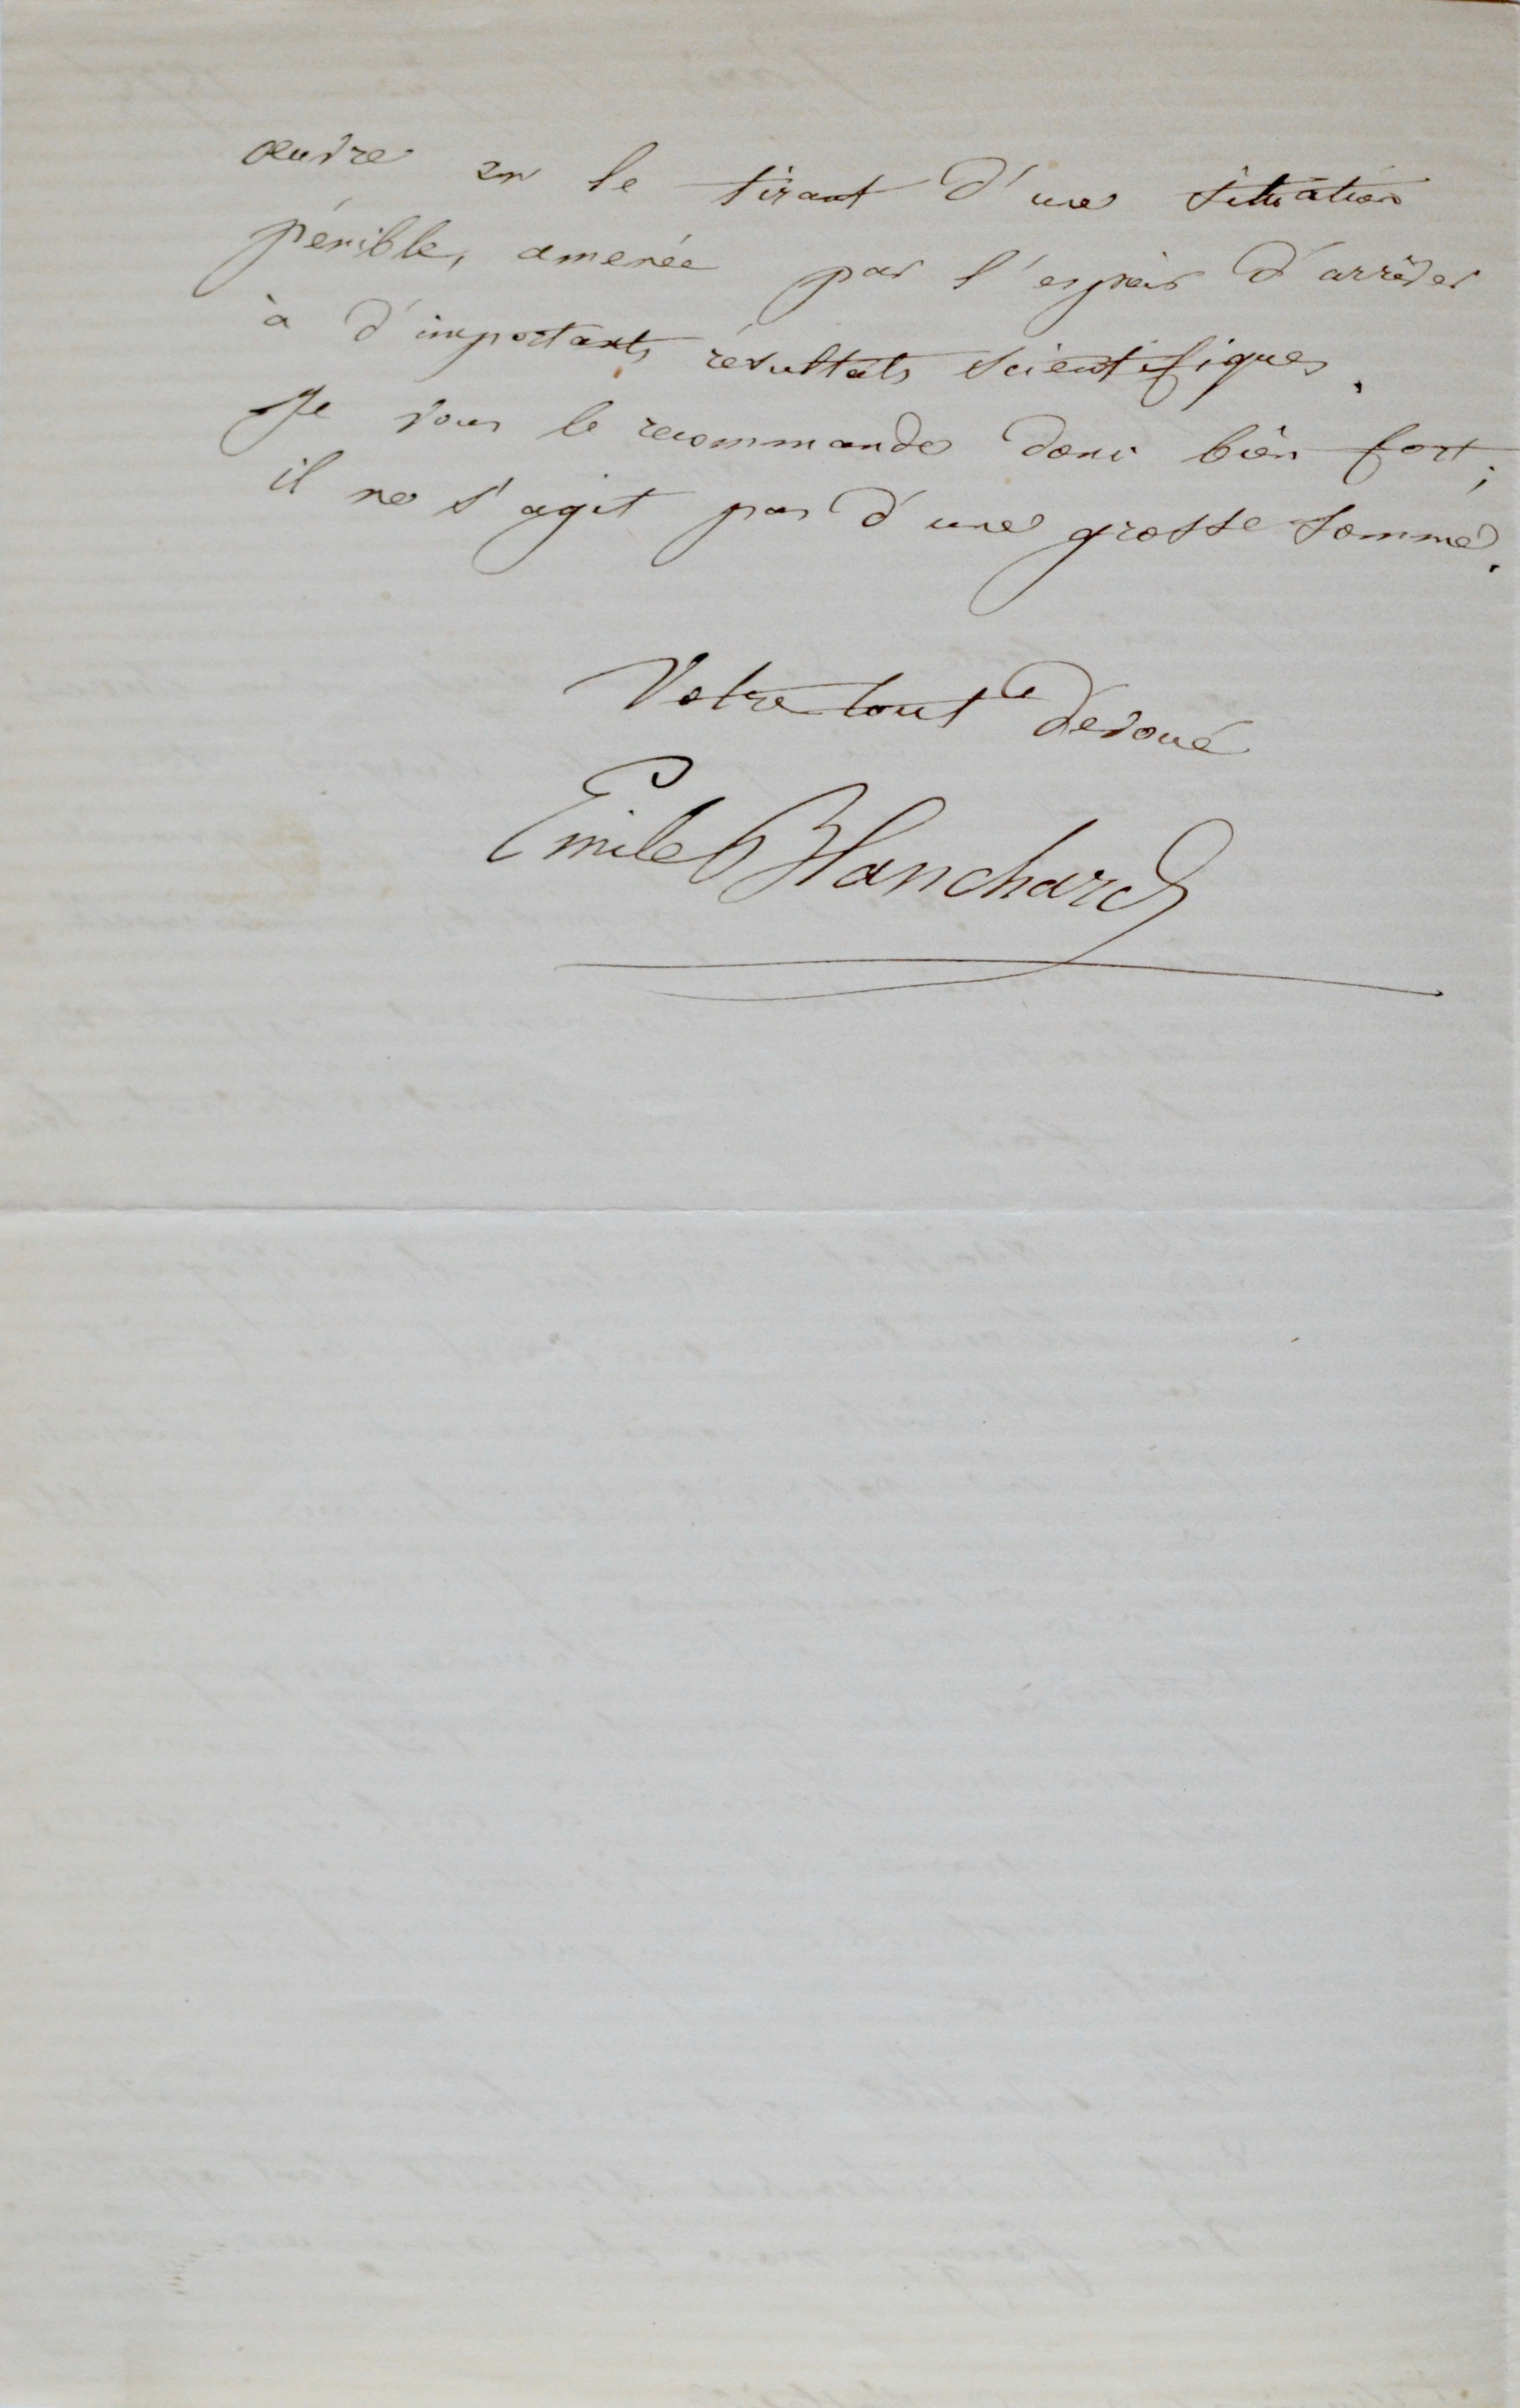 œuvre en le tirant d'une situation
pénible, amenée par l'espoir d'arriver
à d'importants résultats scientifiques.
Je vous le recommande donc bien fort;
il ne s'agit pas d'une grosse somme.
Votre tout dévoué
Emile Blanchard